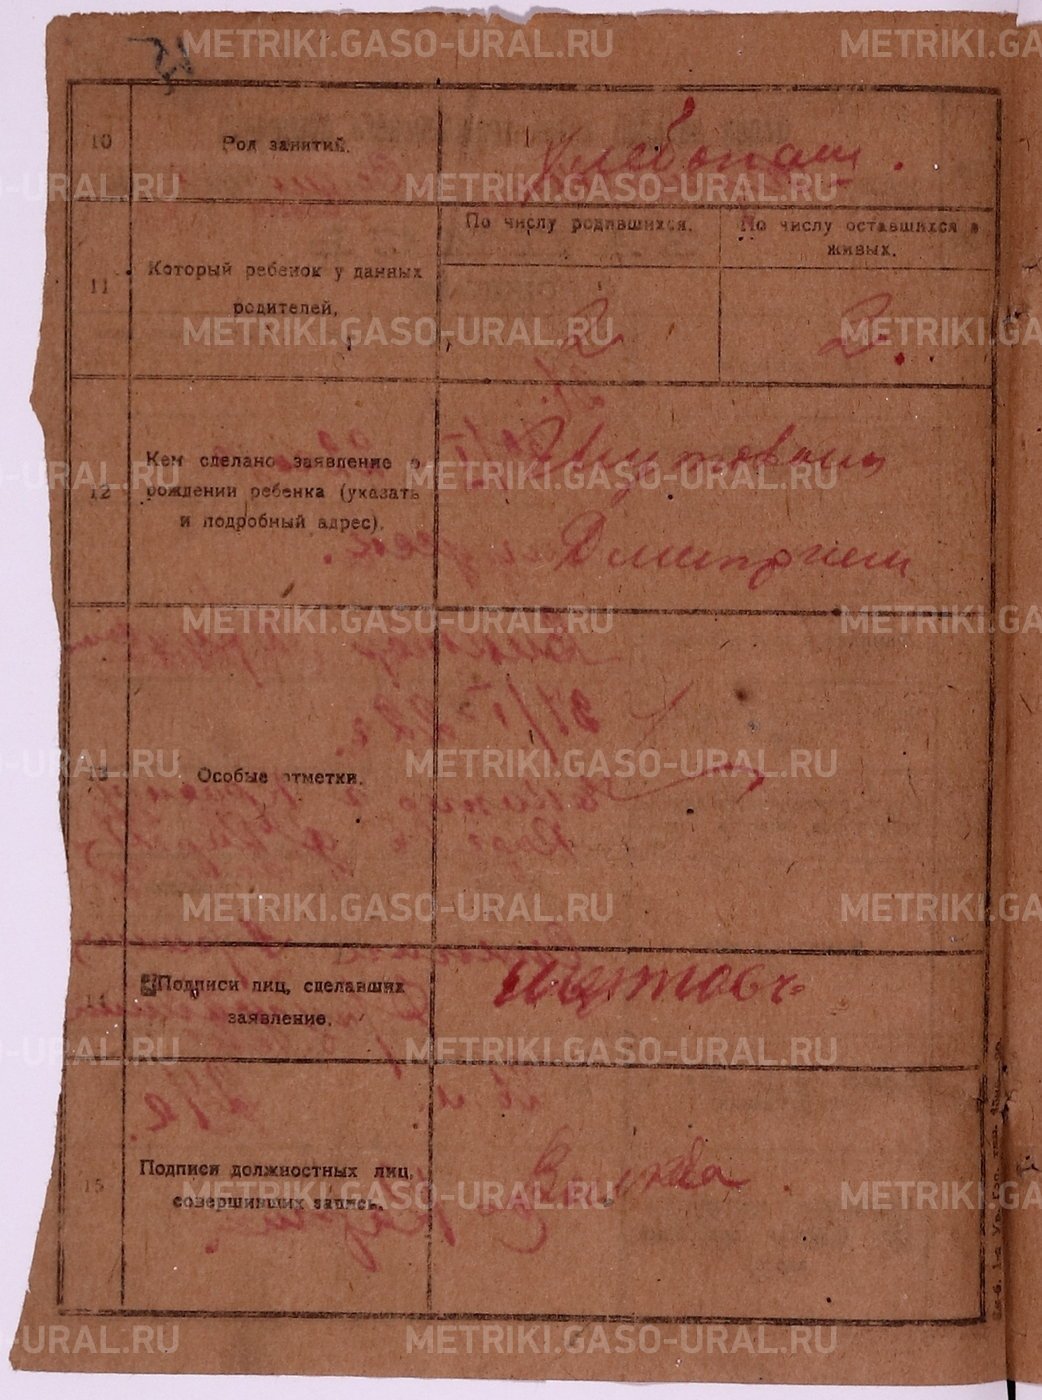 METRIKI.GASO-URAL.RU
10
Род занятий.
Хлебопаш.
11
Который ребенок у данных
родителей.
По числу родившихся.
По числу оставшихся в
живых.
2
2.
12
Кем сделано заявление о
рождении ребенка (указать
и подробный адрес).
Шутовым
Дмитрием
13
Особые отметки.
14
Подписи лиц, сделавших
заявление.
Шутовъ
15
Подписи должностных лиц,
совершивших запись.